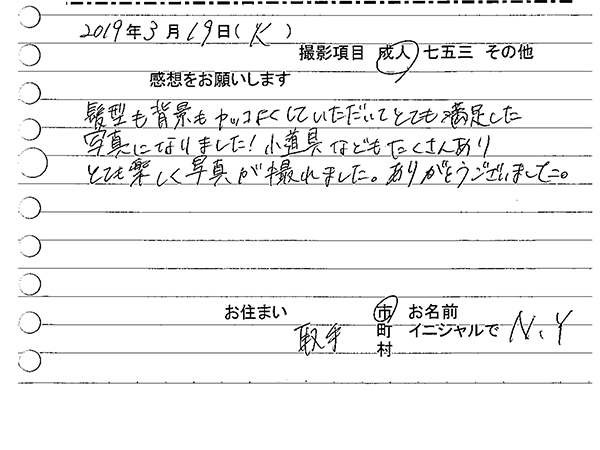 2019年3月19日(K)
撮影項目 成人 七五三 その他
感想をお願いします
髪型も背景もカッコよくしていただいてとても満足した
写真になりました!小道具などもたくさんあり
とても楽しく写真が撮れました。ありがとうございました。
お住まい 取手 市 町 村
お名前 イニシャルで N、Y